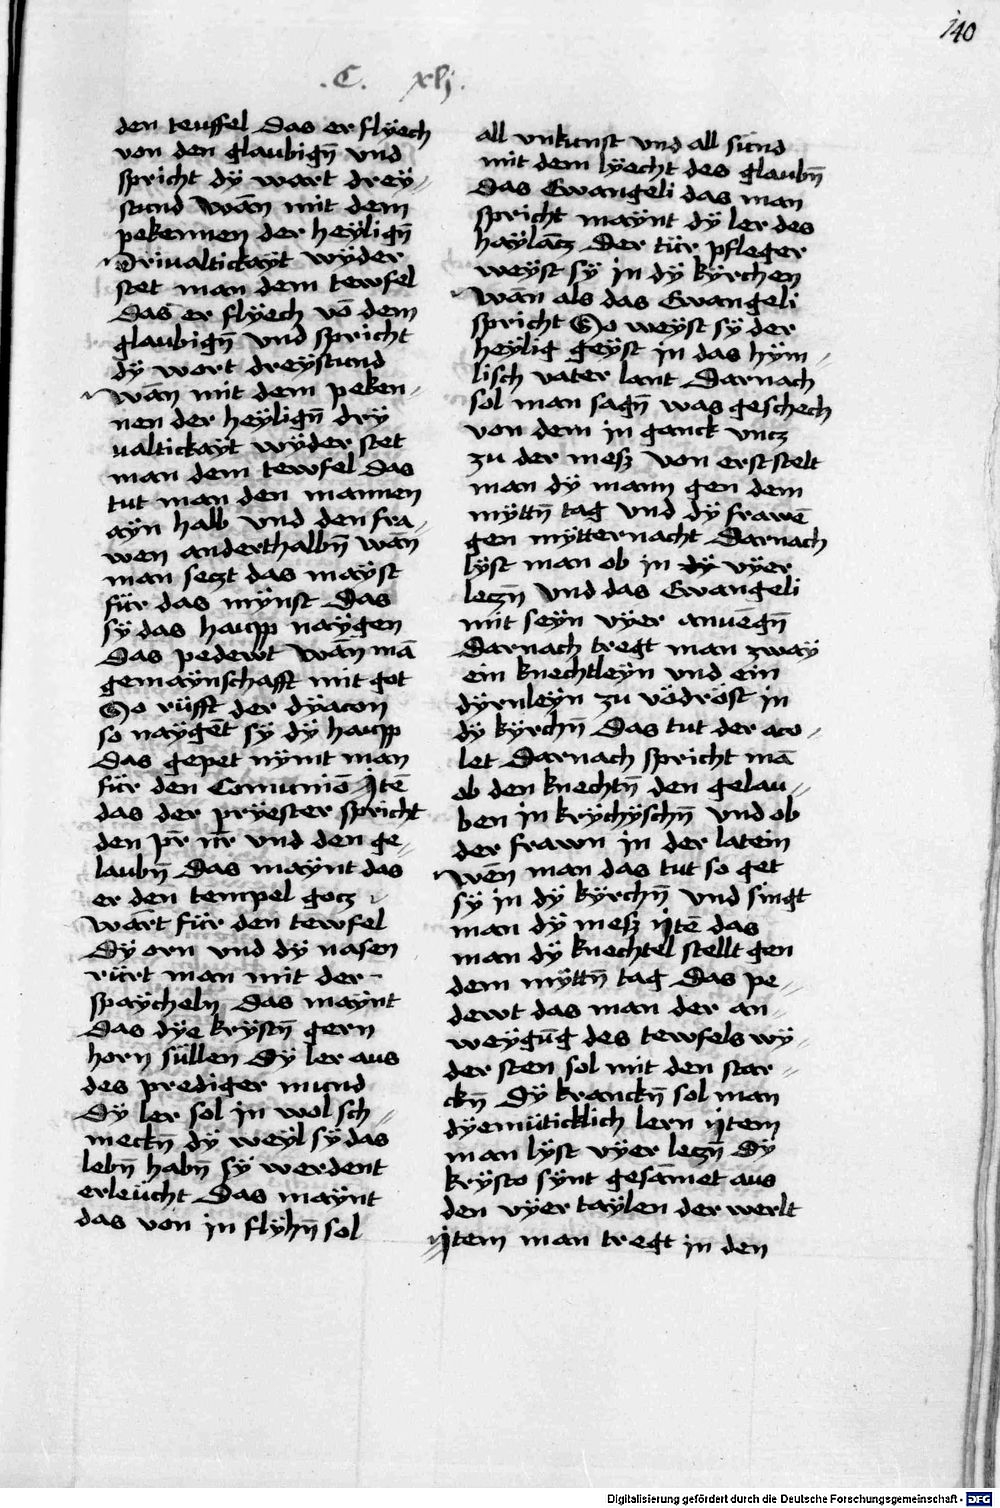 140
.C. xlj.
den teuffel Das er flÿech
von den glaubign̄ vnd
spricht dÿ wart dreÿ
stund Wān mit dem
pekennen der heÿlign̄
Driualtickaÿt wÿder
stet man dem tewfel
Das er flÿech vō dem
glaubign̄ vnd spricht
dÿ wort dreÿstund
Wān mit dem peken
nen der heÿlign̄ drÿ
ualtickaÿt wÿder stet
man dem tewfel das
tut man den mannen
aÿn halb vnd den fra
wen anderthalbn̄ wān
man seczt das maÿst
für das mÿnst Das
sÿ das haupp naÿgen
Das pedewt Wān mā
gemaÿnschafft mit got
So rüfft der dÿacon
so naÿgēt sÿ dÿ haupp
das gepet nÿmt man
für den Comuniō Jtē
das der prÿester spricht
den pr̄ nr̄ vnd den ge
laubn̄ Das maÿnt das
er den tempel gotz
wart für den tewfel
Dÿ orn vnd dÿ nasen
rürt man mit der
spaÿcheln Das maÿnt
Das dÿe krÿstn̄ gern
horn süllen Dÿ ler aus
des prediger mund
Dÿ ler sol in wol sch
meckn̄ dÿ weÿl sÿ das
lebn̄ habn̄ sÿ werdent
erleücht Das maÿnt
das von in flÿhn̄ sol
all vnkunst vnd all sünd
mit dem lÿecht des glaubn̄
Das Ewangeli das man
spricht maÿnt dÿ ler des
haÿlātz Der tür pfleger
weÿst sÿ in dÿ kÿrchen
Wān als das Ewangeli
spricht So weÿst sÿ der
heÿlig geÿst in das hÿm
lisch vater lant Darnach
sol man sagn̄ was geschech
von dem in ganck vncz
zu der mesz Von erst stelt
man dÿ mann gen dem
mÿttn̄ tag vnd dÿ frawē
gen mÿtternacht Darnach
lÿst man ob in dÿ vÿer
leczn̄ Vnd das Ewangeli
mit seÿn vÿer anuēgn̄
Darnach tregt man zwaÿ
ein knechtleÿn vnd ein
dÿrnleÿn zu vödröst in
dÿ kÿrchn̄ Das tut der aco
let Darnach spricht mā
ob den knechtn̄ den gelau
ben in krÿchÿschn̄ Vnd ob
der frawn in der latein
Wēn man das tut so get
sÿ in dÿ kÿrchn̄ Vnd singt
man dÿ mesz ijtē das
man dÿ knechtel stellt gen
dem mÿttn̄ tag Das pe
dewt das man der an
weÿgūg des tewfels wÿ
der sten sol mit den star
ckn̄ Dÿ kranckn̄ sol man
dÿemüticklich lern ijtem
man lÿst vÿer leczn̄ Dÿ
krÿsto sÿnt gesāmet aus
den vÿer taÿlen der werlt
ijtem man tregt in den
Digitalisierung gefördert durch die Deutsche Forschungsgemeinschaft - DFG